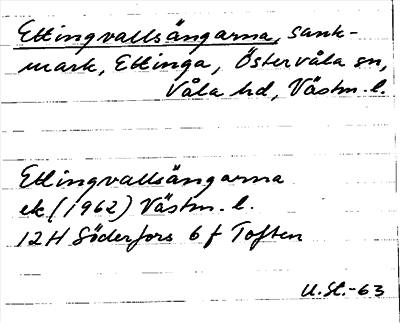 Ettingvallsängarna, sank-
mark, Ettinga, Östervåla sn,
Våla hd, Västm. l.
Ettingvallsängarna
ek (1962) Västm. l.
12H Söderfors 6 f Toften
U.St.-63